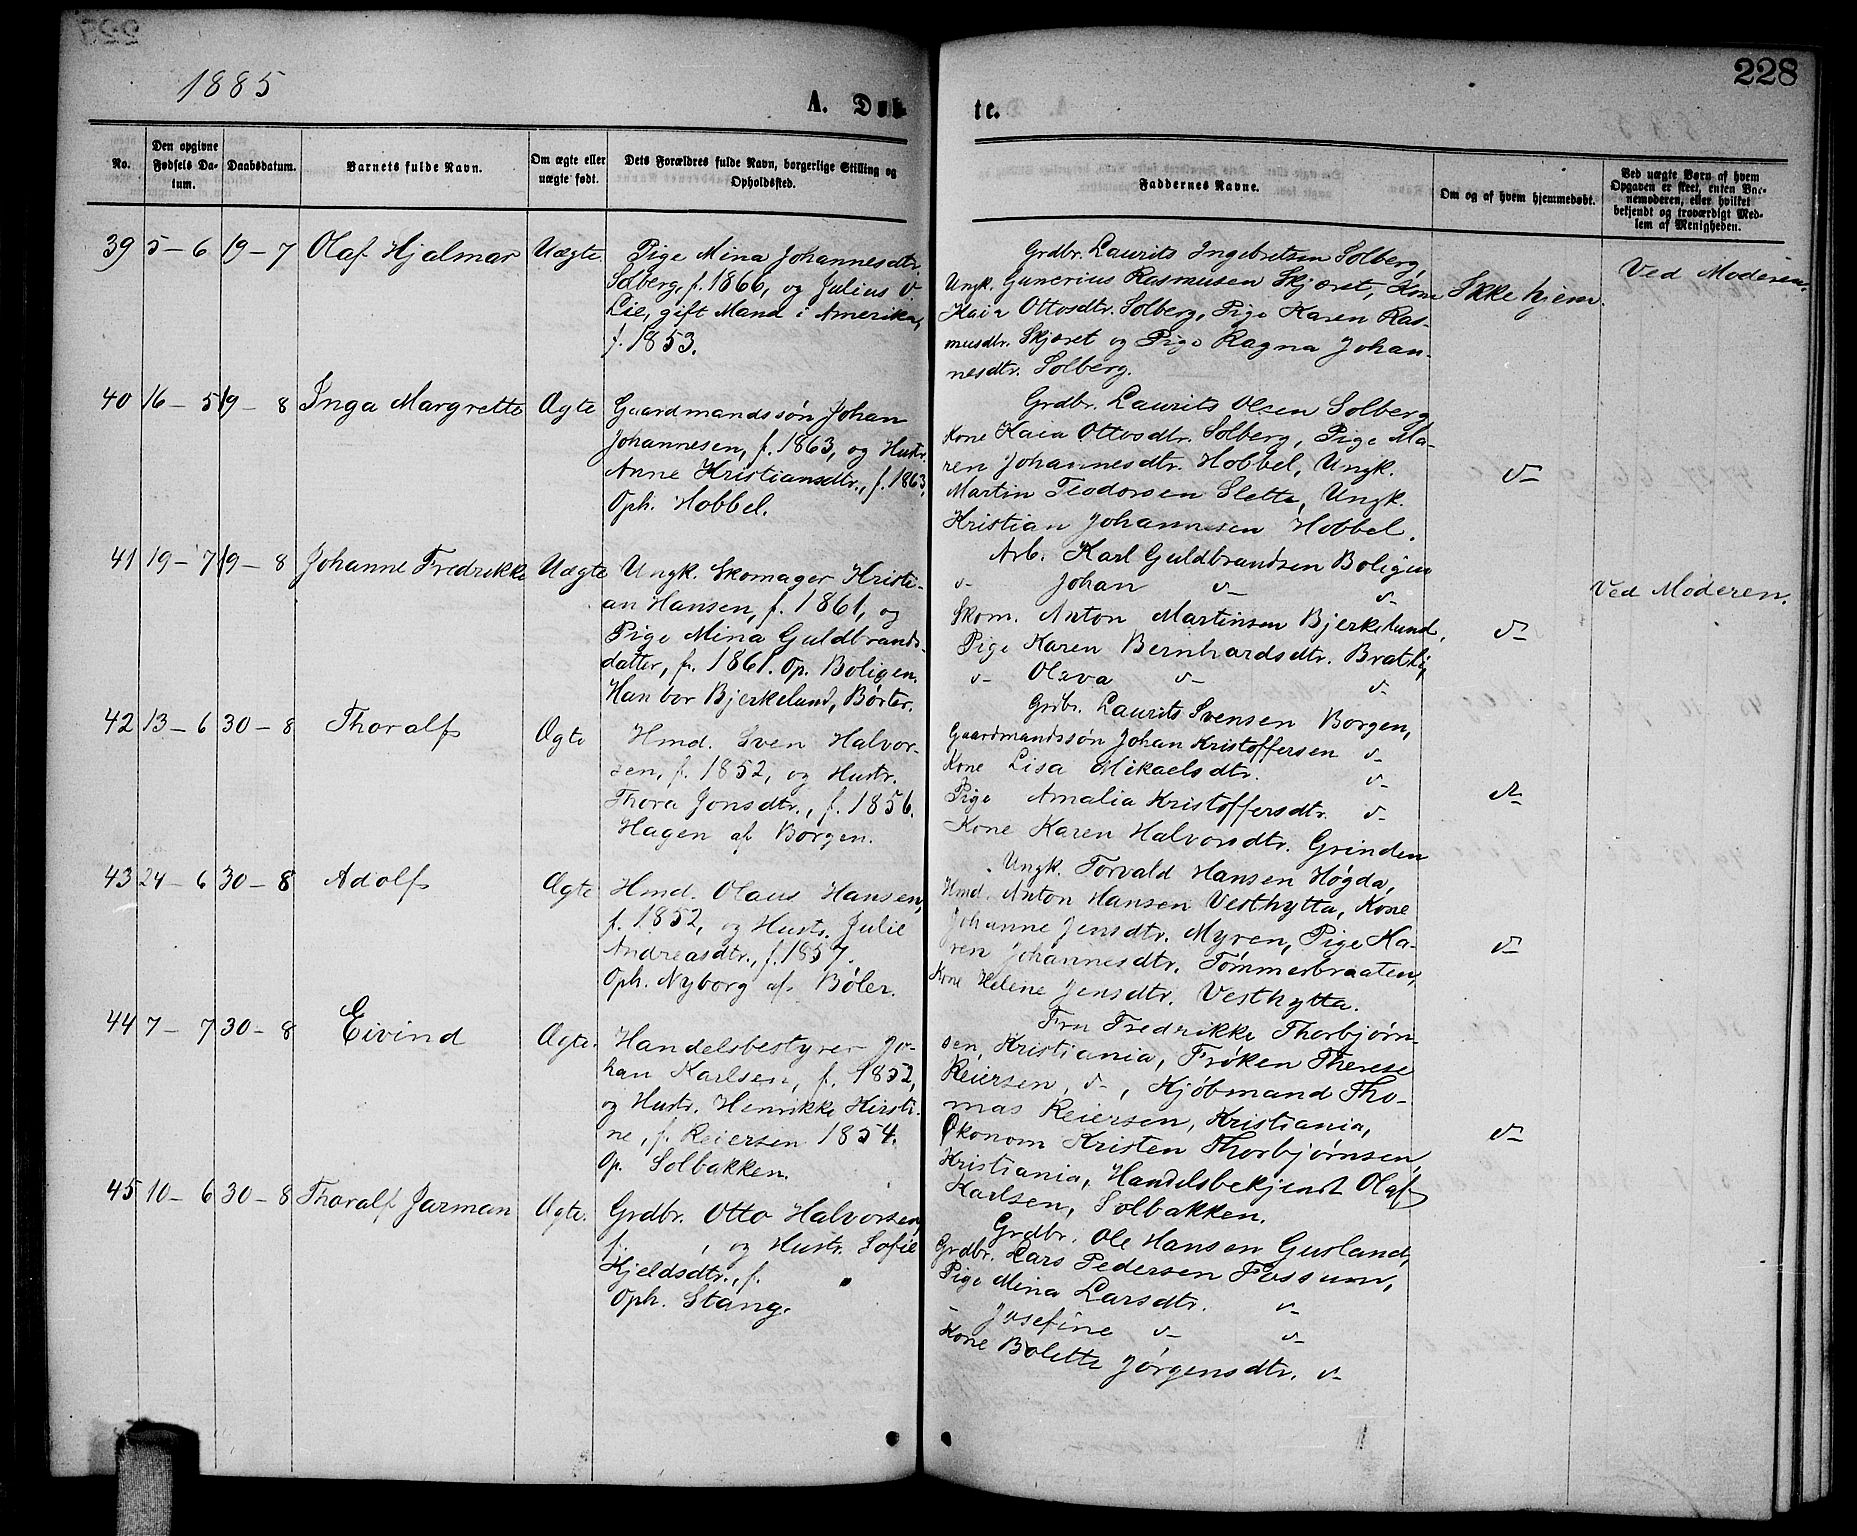 1885
228
A. Døb
te.
No.
Den opgivne Fødsels Datum.
Daabsdatum.
Barnets fulde Navn.
Om ægte eller uægte født.
Dets Forældres fulde Navn, borgerlige Stilling og Opholdsted.
Faddernes Navne.
Om og af hvem hjemmedøbt.
Ved uægte Børn af hvem Opgaven er skeet, enten Barnemoderen, eller hvilket bekjendt og troværdigt Medlem af Menigheden.
39 5-6 19-7 Olaf Hjalmar Uægte
Pige Mina Johannesdtr.
Solberg, f. 1866, og Julius O.
Lie, gift Mand i Amerika,
f. 1853.
Grdbr. Laurits Ingebretsen Solberg,
Ungk. Gunerius Rasmusen Skjæret, Kone
Kaia Ottosdtr. Solberg, Pige Karen Ras-
musdtr. Skjæret og Pige Ragna Johan-
nesdtr. Solberg.
Ikke hjem.
Ved Moderen.
40 16-5 19-8 Inga Margrette Ægte
Gaardmandssøn Johan
Johannesen, f. 1863, og Hustr.
Anne Kristiansdtr., f. 1863.
Oph. Hobbel.
Grdbr. Laurits Olsen Solberg,
Kone Kaia Ottosdtr. Solberg, Pige Ma-
ren Johannesdtr. Hobbel, Ungk.
Martin Teodorsen Sletta, Ungk.
Kristian Johannesen Hobbel.
v-
41 19-7 19-8 Johanne Fredrikke Uægte
Ungk. Skomager Kristi-
an Hansen, f. 1861, og
Pige Mina Guldbrands-
datter, f. 1861. Op. Boligen.
Han bor Bjerkelund, Børter.
Arb. Karl Guldbrandsen Boligen
v- Johan v- v-
Skom. Anton Martinsen Bjerkelund,
Pige Karen Bernhardsdtr. Bratlig
v- Olava v- v-
v-
Ved Moderen.
42 13-6 30-8 Thoralf Ægte
Hmd. Sven Halvor-
sen, f. 1852, og Hustr.
Thora Jonsdtr., f. 1856.
Hagen af Borgen.
Grdbr. Laurits Svensen Borgen,
Gaardmandssøn Johan Kristoffersen v-
Kone Lisa Mikaelsdtr. v-
Pige Amalia Kristoffersdtr. v-
Kone Karen Halvorsdtr. Grinden
v-
43 24-6 30-8 Adolf Ægte
Hmd. Olaus Hansen,
f. 1852, og Hustr. Julie
Andreasdtr., f. 1857.
Oph. Nyborg af Bøler.
Ungk. Torvald Hansen Høgda,
Hmd. Anton Hansen Vesthytta, Kone
Johanne Jensdtr. Myren, Pige Ka-
ren Johannesdtr. Tømmerbraaten,
Kone Helene Jensdtr. Vesthytta.
v-
44 7-7 30-8 Eivind Ægte.
Handelsbestyrer Jo-
han Karlsen, f. 1852,
og Hustr. Henrikke Kirsti-
ne, f. Reiersen 1854.
Op. Solbakken.
Fru Fredrikke Thorbjørn-
sen, Kristiania, Frøken Therese
Reiersen, v-, Kjøbmand Tho-
mas Reiersen, Kristiania,
Økonom Kristen Thorbjørnsen,
Kristiania, Handelsbekjendt Olaf
Karlsen, Solbakken.
v-
45 10-6 30-8 Thoralf Jarman Ægte.
Grdbr. Otto Halvorsen,
f. , og Hustr. Sofie
Kjeldsdtr., f.
Oph. Stang.
Grdbr. Ole Hansen Gusland,
Grdbr. Lars Pedersen Fossum,
Pige Mina Larsdtr. v-
- Josefine v- v-
Kone Bolette Jørgensdtr. v-